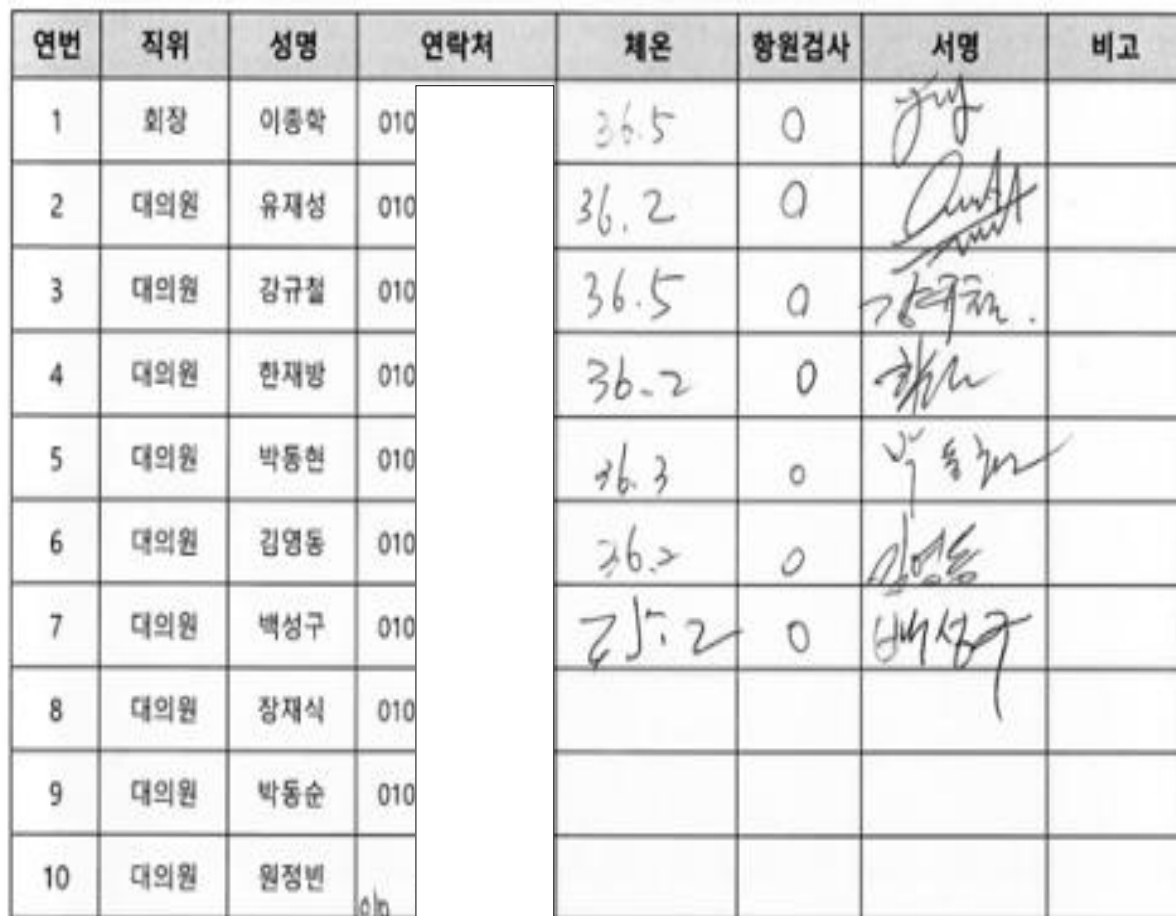 연번 직위 성명 연락처 체온 항원검사 서명 비고
1 회장 이종학 010 36.5 0
2 대의원 유재성 010 36.2 0
3 대의원 강규철 010 36.5 0 강규철.
4 대의원 한재방 010 36.2 0
5 대의원 박동현 010 36.3 0 박동현
6 대의원 김영동 010 36.2 0 김영동
7 대의원 백성구 010 35.2 0 백성구
8 대의원 장재식 010
9 대의원 박동순 010
10 대의원 원정빈